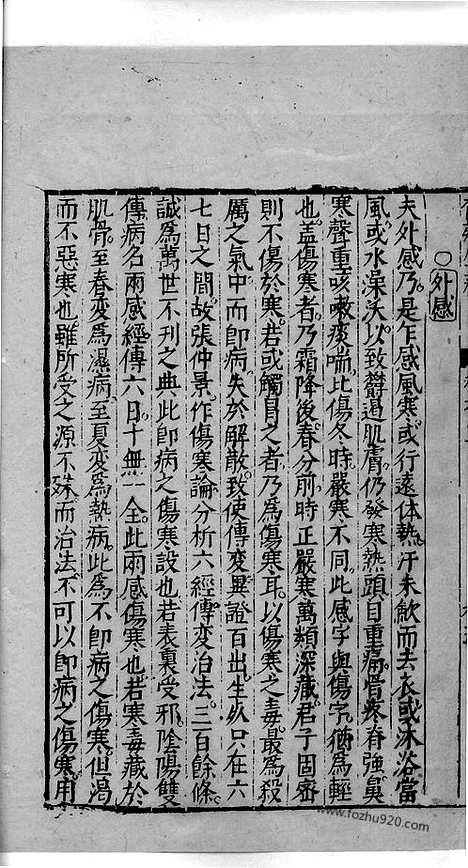 ○外感
夫外感乃是乍感風寒或行遠体熱汗未歛而去衣或沐浴當
風或水澡沃以致欝遏肌膚仍發寒熱頭目重痛骨疼脊強鼻
寒聲重咳嗽痰喘比傷冬時嚴寒不同此感字與傷字猶為輕
也盖傷寒者乃霜降後春分前時正嚴寒萬類深藏君子固宻
則不傷於寒若或觸冒之者乃為傷寒耳以傷寒之毒最為殺
厲之氣中而即病失於解散致使傳变異證百出生死只在六
七日之間故張仲景作傷寒論分析六經傳变治法三百餘條
誠為萬世不刊之典此即病之傷寒設也若表裏受邪陰陽雙
傳病名兩感經傳六日十無一全此兩感傷寒也若寒毒藏於
肌骨至春变為濕病至夏变為熱病此為不即病之傷寒但渴
而不惡寒也雖所受之源不殊而治法不可以即病之傷寒用
www.fozhu920.com